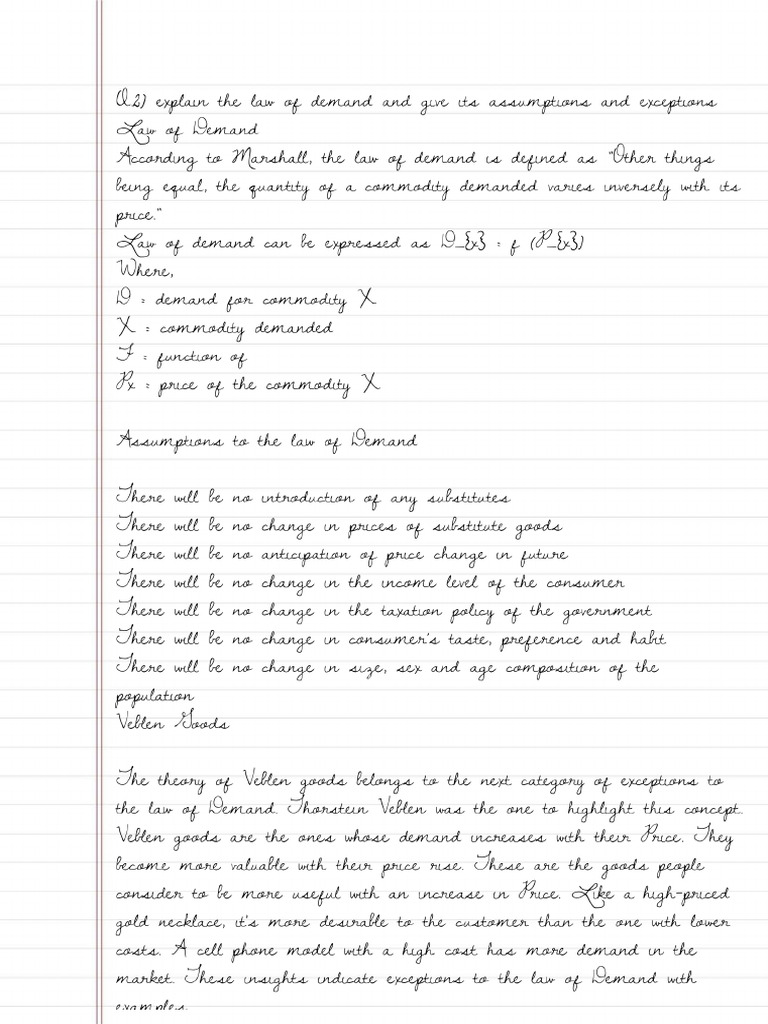 Q2) explain the law of demand and give its assumptions and exceptions
Law of Demand
According to Marshall, the law of demand is defined as "Other things
being equal, the quantity of a commodity demanded varies inversely with its
price."
Law of demand can be expressed as D_{x} = f (P_{x})
Where,
D = demand for commodity X
X = commodity demanded
F = function of
Px = price of the commodity X
Assumptions to the law of Demand
There will be no introduction of any substitutes
There will be no change in prices of substitute goods
There will be no anticipation of price change in future
There will be no change in the income level of the consumer
There will be no change in the taxation policy of the government
There will be no change in consumer's taste, preference and habit
There will be no change in size, sex and age composition of the
population
Veblen Goods
The theory of Veblen goods belongs to the next category of exceptions to
the law of Demand. Thorstein Veblen was the one to highlight this concept.
Veblen goods are the ones whose demand increases with their Price. They
become more valuable with their price rise. These are the goods people
consider to be more useful with an increase in Price. Like a high-priced
gold necklace, it's more desirable to the customer than the one with lower
costs. A cell phone model with a high cost has more demand in the
market. These insights indicate exceptions to the law of Demand with
examples.